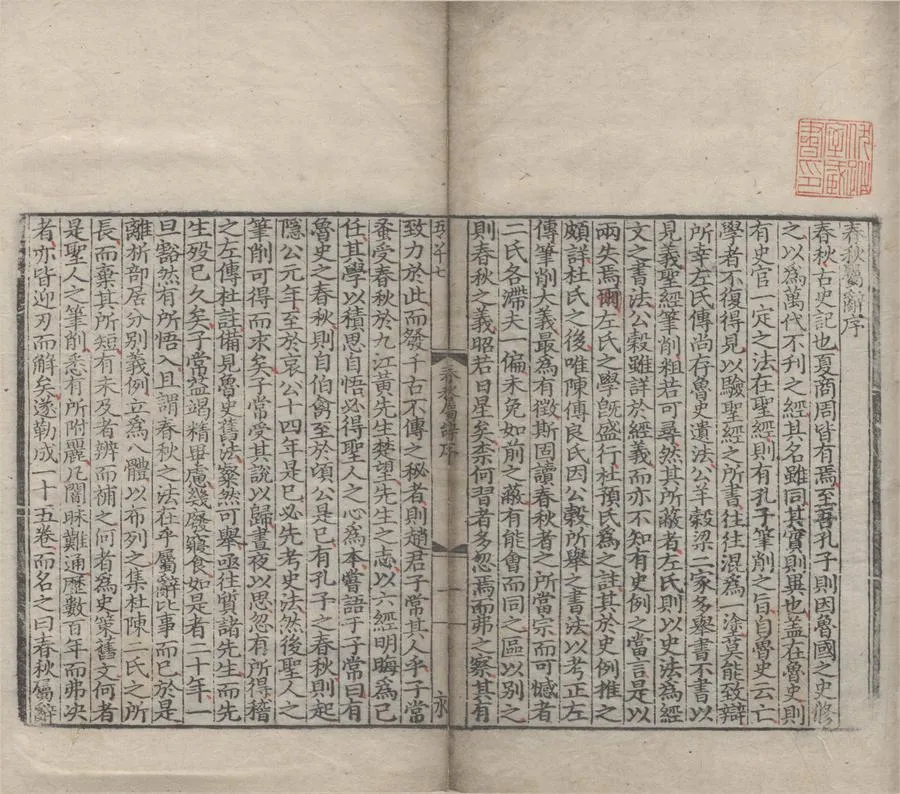 春秋屬辭序
春秋古史記也夏商周皆有焉至吾孔子則因魯國之史脩
之以為萬代不刋之經其名雖同其實則異也蓋在魯史則
有史官一定之法在聖經則有孔子筆削之旨自魯史云亡
學者不復得見以驗聖經之所書往往混為一塗莫能致辯
所幸左氏傳尚存魯史遺法公羊穀梁二家多舉書不書以
見義聖經筆削粗若可尋然其所蔽者左氏則以史法為經
文之書法公穀雖詳於經義而亦不知有史例之當言是以
兩失焉爾左氏之學既盛行杜預氏為之註其於史例推之
頗詳杜氏之後唯陳傅良氏因公穀所舉之書法以考正左
傳筆削大義最為有徵斯固讀春秋者之所當宗而可憾者
二氏各滯夫一偏未免如前之蔽有能會而同之區以別之
則春秋之義昭若日星矣柰何習者多忽焉而弗之察其有
五千七
春秋屬辭序
一
永
致力於此而發千古不傳之秘者則趙君子常其人乎子常
蚤受春秋於九江黃先生楚望先生之志以六經明晦為己
任其學以積思自悟必得聖人之心為本嘗語于子常曰有
魯史之春秋則自伯禽至於頃公是已有孔子之春秋則起
隱公元年至於哀公十四年是已必先考史法然後聖人之
筆削可得而求矣子常受其說以歸晝夜以思忽有所得稽
之左傳杜註備見魯史舊法粲然可舉亟往質諸先生而先
生歿已久矣子常益竭精畢慮幾廢寢食如是者二十年一
旦豁然有所悟入且謂春秋之法在乎屬辭比事而已於是
離析部居分別義例立為八體以布列之集杜陳二氏之所
長而棄其所短有未及者辨而補之何者為史策舊文何者
是聖人之筆削悉有所附麗凡闇昧難通歷數百年而弗决
者亦皆迎刃而解矣遂勒成一十五卷而名之曰春秋屬辭